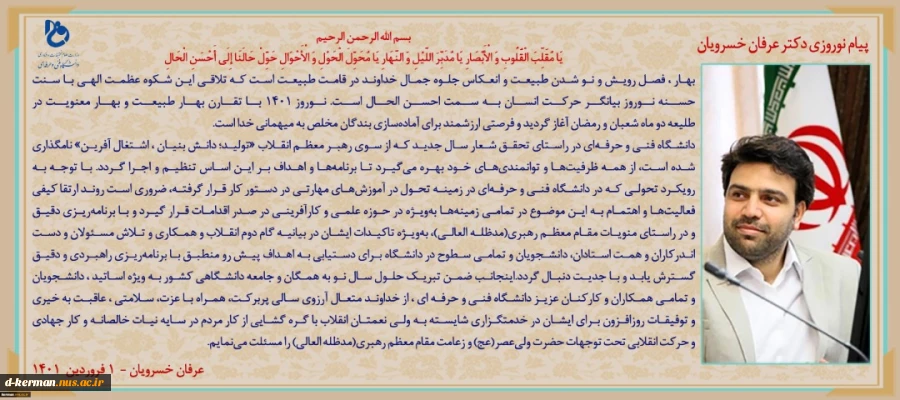 پیام نوروزی دکتر عرفان خسرویان
بسم الله الرحمن الرحیم
یَا مُقَلِّبَ الْقُلُوبِ وَ الْأَبْصَارِ یَا مُدَبِّرَ اللَّیْلِ وَ النَّهَارِ یَا مُحَوِّلَ الْحَوْلِ وَ الْأَحْوَالِ حَوِّلْ حَالَنَا إِلَى أَحْسَنِ الْحَالِ
بهار ، فصل رویش و نو شدن طبیعت و انعکاس جلوه جمال خداوند در قامت طبیعت است که تلاقی این شکوه عظمت الهی با سنت
حسنه نوروز بیانگر حرکت انسان به سمت احسن الحال است. نوروز ۱۴۰۱ با تقارن بهار طبیعت و بهار معنویت در
طلیعه دو ماه شعبان و رمضان آغاز گردید و فرصتی ارزشمند برای آماده‌سازی بندگان مخلص به میهمانی خدا است.
دانشگاه فنی و حرفه‌ای در راستای تحقق شعار سال جدید که از سوی رهبر معظم انقلاب «تولید؛ دانش بنیان ، اشتغال آفرین» نامگذاری
شده است، از همه ظرفیت‌ها و توانمندی‌های خود بهره می‌گیرد تا برنامه‌ها و اهداف بر این اساس تنظیم و اجرا گردد. با توجه به
رویکرد تحولی که در دانشگاه فنی و حرفه‌ای در زمینه تحول در آموزش‌های مهارتی در دستور کار قرار گرفته، ضروری است روند ارتقا کیفی
فعالیت‌ها و اهتمام به این موضوع در تمامی زمینه‌ها به‌ویژه در حوزه علمی و کارآفرینی در صدر اقدامات قرار گیرد و با برنامه‌ریزی دقیق
و در راستای منویات مقام معظم رهبری(مدظله العالی)، به‌ویژه تاکیدات ایشان در بیانیه گام دوم انقلاب و همکاری و تلاش مسئولان و دست
اندرکاران و همت استادان، دانشجویان و تمامی سطوح در دانشگاه برای دستیابی به اهداف پیش رو منطبق با برنامه‌ریزی راهبردی و دقیق
گسترش یابد و با جدیت دنبال گردد.اینجانب ضمن تبریک حلول سال نو به همگان و جامعه دانشگاهی کشور به ویژه اساتید ، دانشجویان
و تمامی همکاران و کارکنان عزیز دانشگاه فنی و حرفه ای ، از خداوند متعال آرزوی سالی پربرکت، همراه با عزت، سلامتی ، عاقبت به خیری
و توفیقات روزافزون برای ایشان در خدمتگزاری شایسته به ولی نعمتان انقلاب با گره گشایی از کار مردم در سایه نیات خالصانه و کار جهادی
و حرکت انقلابی تحت توجهات حضرت ولی‌عصر(عج) و زعامت مقام معظم رهبری(مدظله العالی) را مسئلت می‌نمایم.
عرفان خسرویان - ۱ فروردین ۱۴۰۱
d-kerman.nus.ac.ir